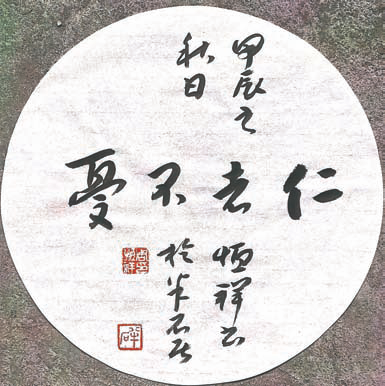 仁者不憂
甲辰之
秋日
恒祥书
於半石居